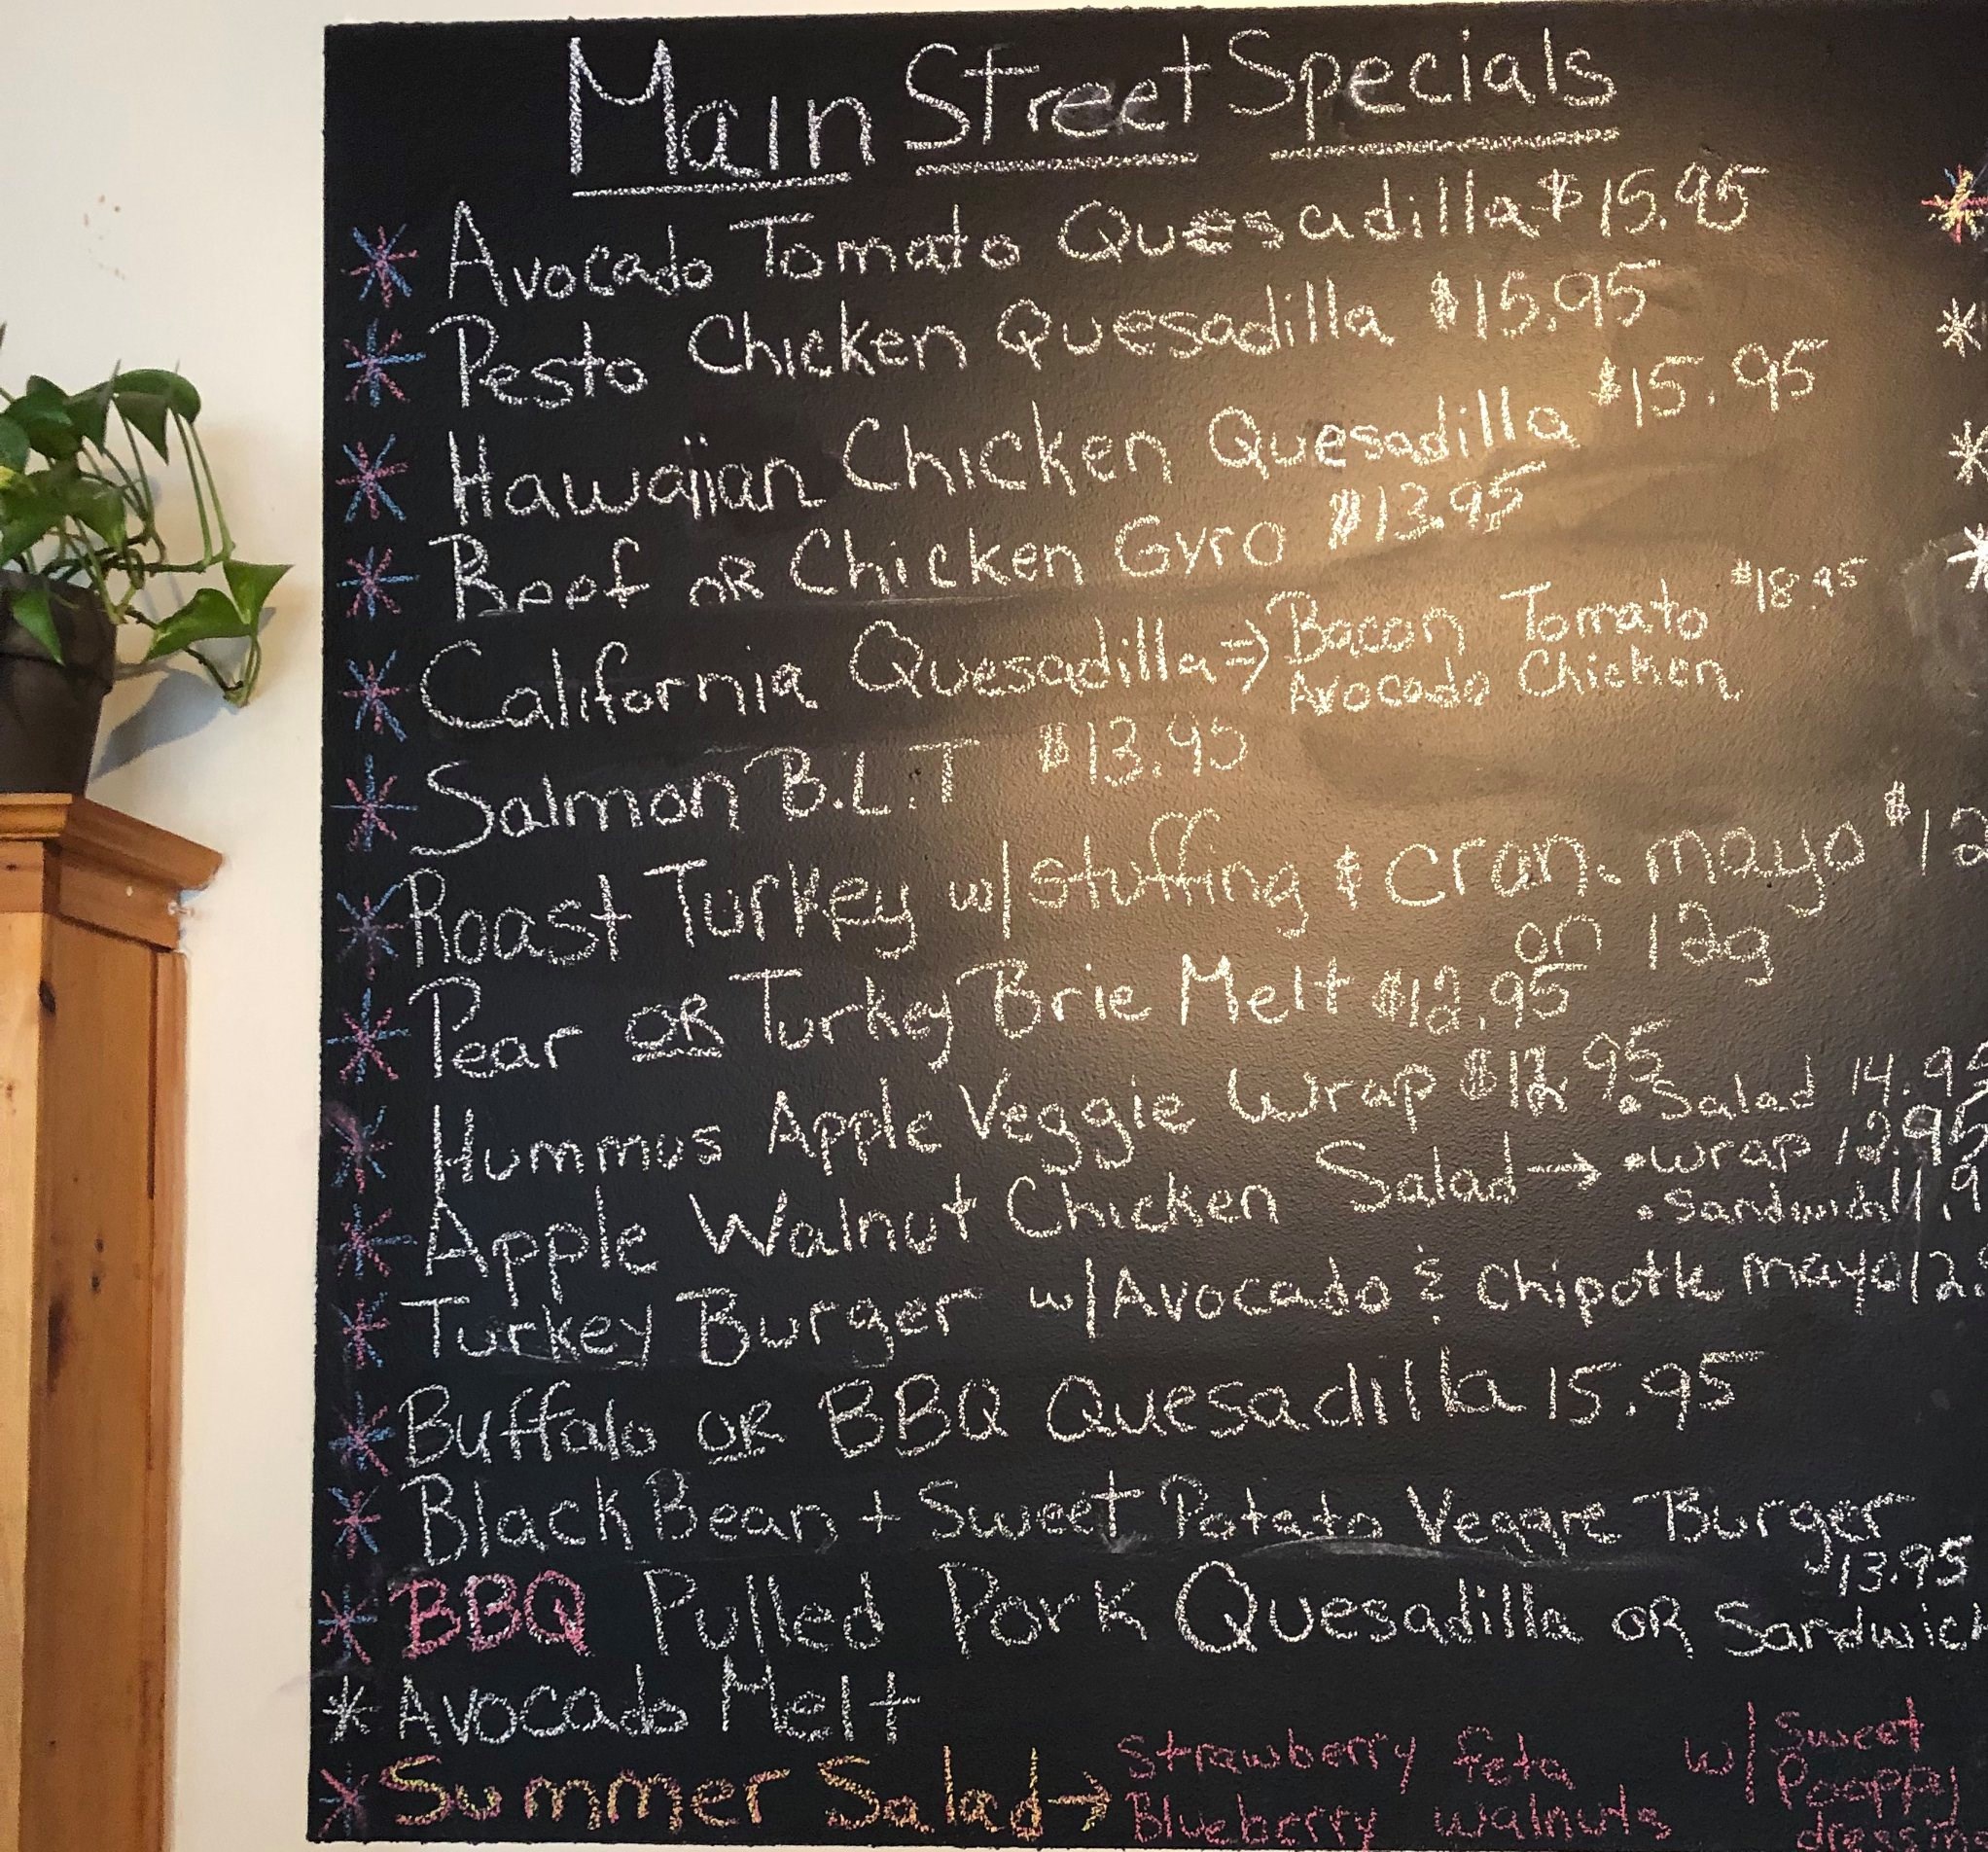 Main Street Specials
Avocado Tomato Quesadilla $15.95
Pesto Chicken Quesadilla $15.95
Hawaiian Chicken Quesadilla $15.95
Beef OR Chicken Gyro $13.95
California Quesadilla ⇒ Bacon Tomato $18.95
Avocado Chicken
Salmon B.L.T $13.95
Roast Turkey w/ stuffing & cran. mayo $12
on 12g
Pear OR Turkey Brie Melt $12.95
Hummus Apple Veggie Wrap $12.95
Apple Walnut Chicken Salad → • Salad 14.95
• wrap 12.95
• Sandwich 11.9
Turkey Burger w/ Avocado & Chipotle mayo 12
Buffalo OR BBQ Quesadilla 15.95
Black Bean + Sweet Potato Veggie Burger
$13.95
BBQ Pulled Pork Quesadilla OR Sandwich
* Avocado Melt
Summer Salad → Strawberry feta w/ Sweet
Blueberry walnuts Poappy
dressing